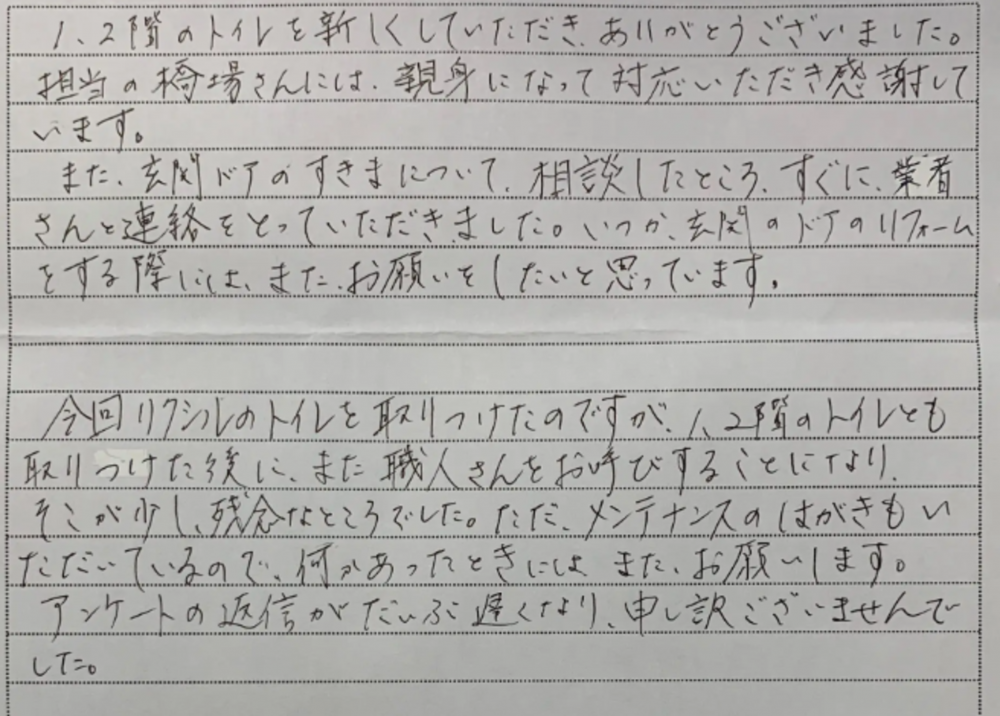 1、2階のトイレを新しくしていただき、ありがとうございました。
担当の橋場さんには、親身になって対応いただき感謝して
います。
また、玄関ドアのすきまについて、相談したところ、すぐに、業者
さんと連絡をとっていただきました。いつか、玄関のドアのリフォーム
をする際には、また、お願いをしたいと思っています。
今回リクシルのトイレを取りつけたのですが、1、2階のトイレとも
取りつけた後に、また職人さんをお呼びすることになり、
そこが少し、残念なところでした。ただ、メンテナンスのはがきもい
ただいているので、何かあったときには、また、お願いします。
アンケートの返信がだいぶ遅くなり、申し訳ございませんで
した。